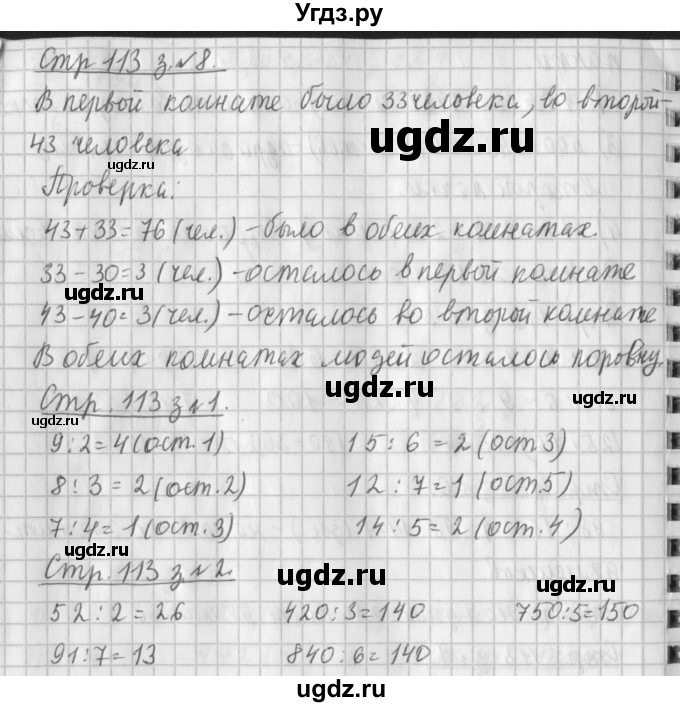 Угдз.ру
Стр 113 з.№8.
В первой комнате было 33 человека, во второй-
ugdz.ru
43 человека
ugdz.ru
Проверка:
43+33=76 (чел.) - было в обеих комнатах.
33-30=3 (чел.) - осталось в первой комнате
ugdz.ru
43-40=3 (чел.) - осталось во второй комнате
В обеих комнатах людей осталось поровну.
ugdz.ru
Стр. 113 з №1.
ugdz.ru
ugdz.ru
9:2=4 (ост. 1) 15:6=2 (ост 3)
8:3=2 (ост. 2) 12:7=1 (ост. 5)
7:4=1 (ост. 3) 14:5=2 (ост. 4)
ugdz.ru
Стр. 113 з №2.
ugdz.ru
ugdz.ru
52:2=26 420:3=140 750:5=150
91:7=13 840:6=140
ugdz.ru